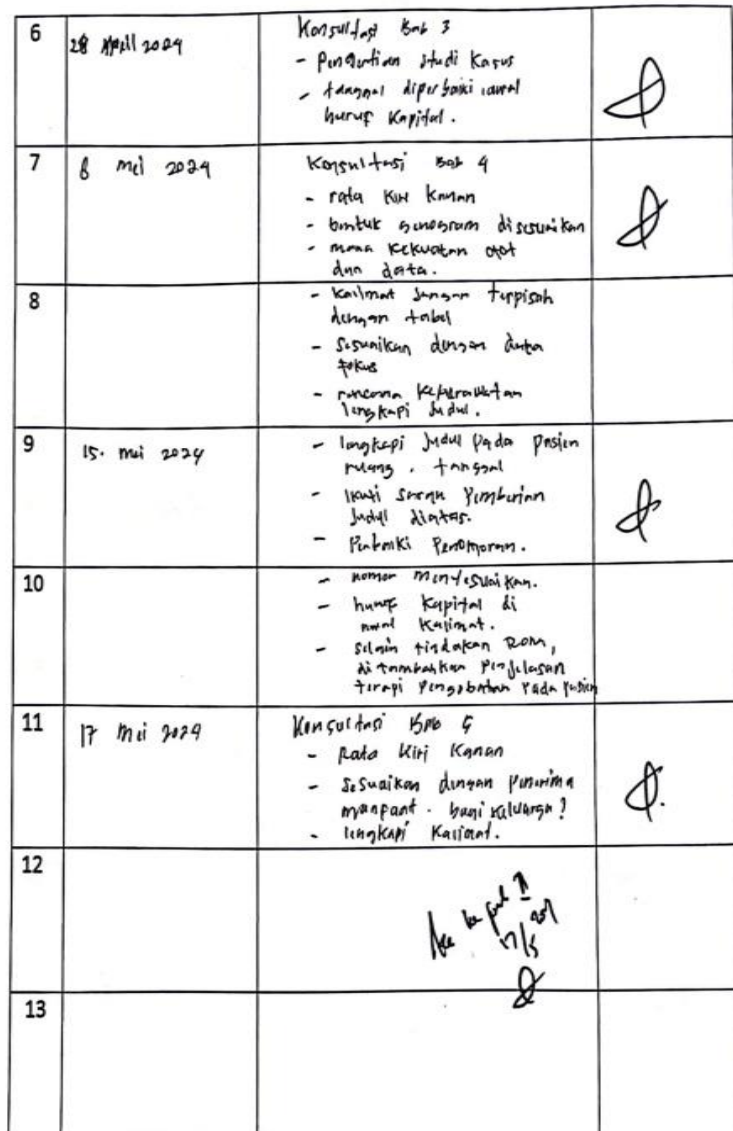 6
28 April 2024
Konsultasi Bab 3
- Pengertian Studi Kasus
- tanggal diperbaiki awal
huruf Kapital.
7
8 Mei 2024
Konsultasi Bab 4
- rata Kiri Kanan
- bentuk genogram disesuaikan
- mana Kekuatan otot
dan data.
8
- Kalimat Jangan terpisah
dengan tabel
- Sesuaikan dengan data
fokus
- rencana Keperawatan
lengkapi Judul.
9
15. Mei 2024
- lengkapi Judul Pada Pasien
ruang, tanggal
- Ikuti Saran Pemberian
Judul diatas.
- Perbaiki Penomoran.
10
- nomor menyesuaikan.
- huruf Kapital di
awal Kalimat.
- Selain tindakan ROM,
di tambahkan Penjelasan
terapi Pengobatan Pada Pasien
11
17 Mei 2024
Konsultasi Bab 5
- Rata Kiri Kanan
- Sesuaikan dengan Penerima
manfaat. bagi keluarga?
- lengkapi Kalimat.
12
Acc ke
17/5
13